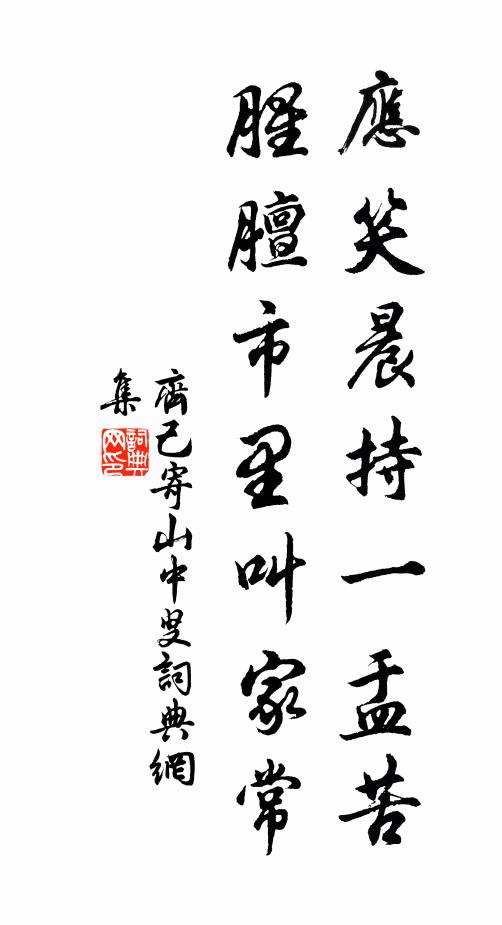 應笑晨持一盂苦
腥膻市里叫家常
齊己寄山中叟詞典網
集
詞典網印